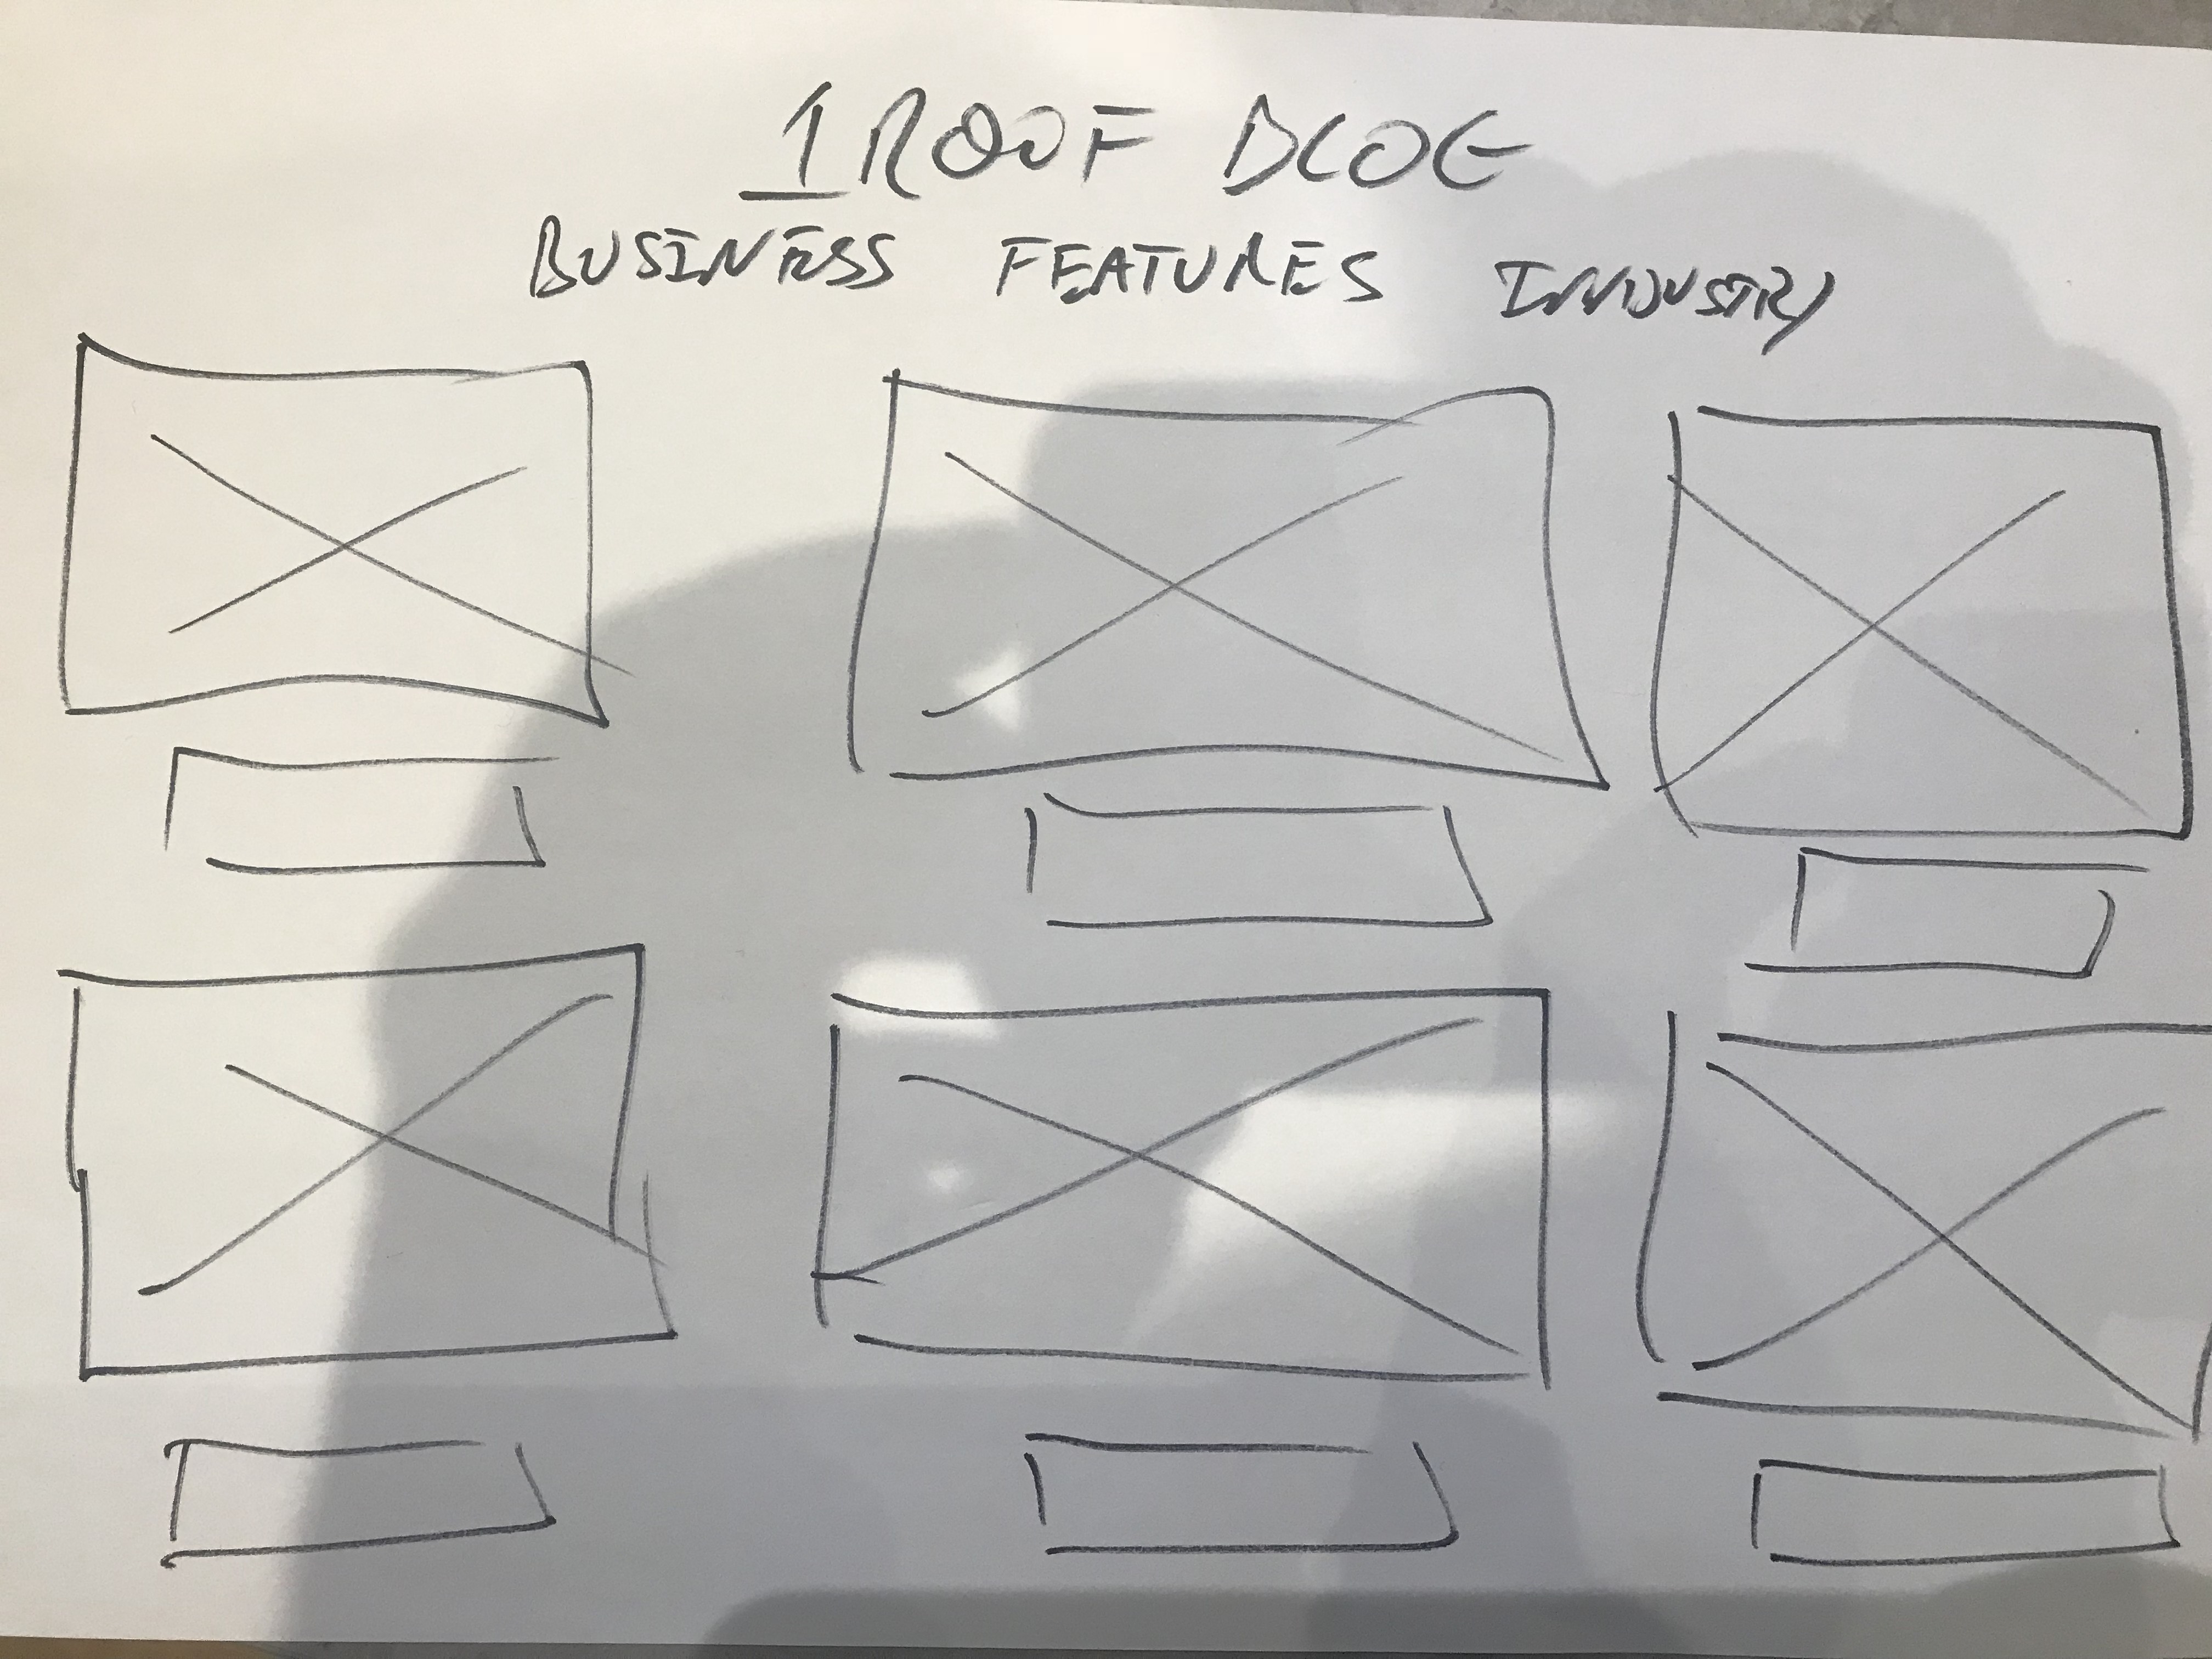 1 ROOF BLOG
BUSINESS FEATURES INDUSTRY